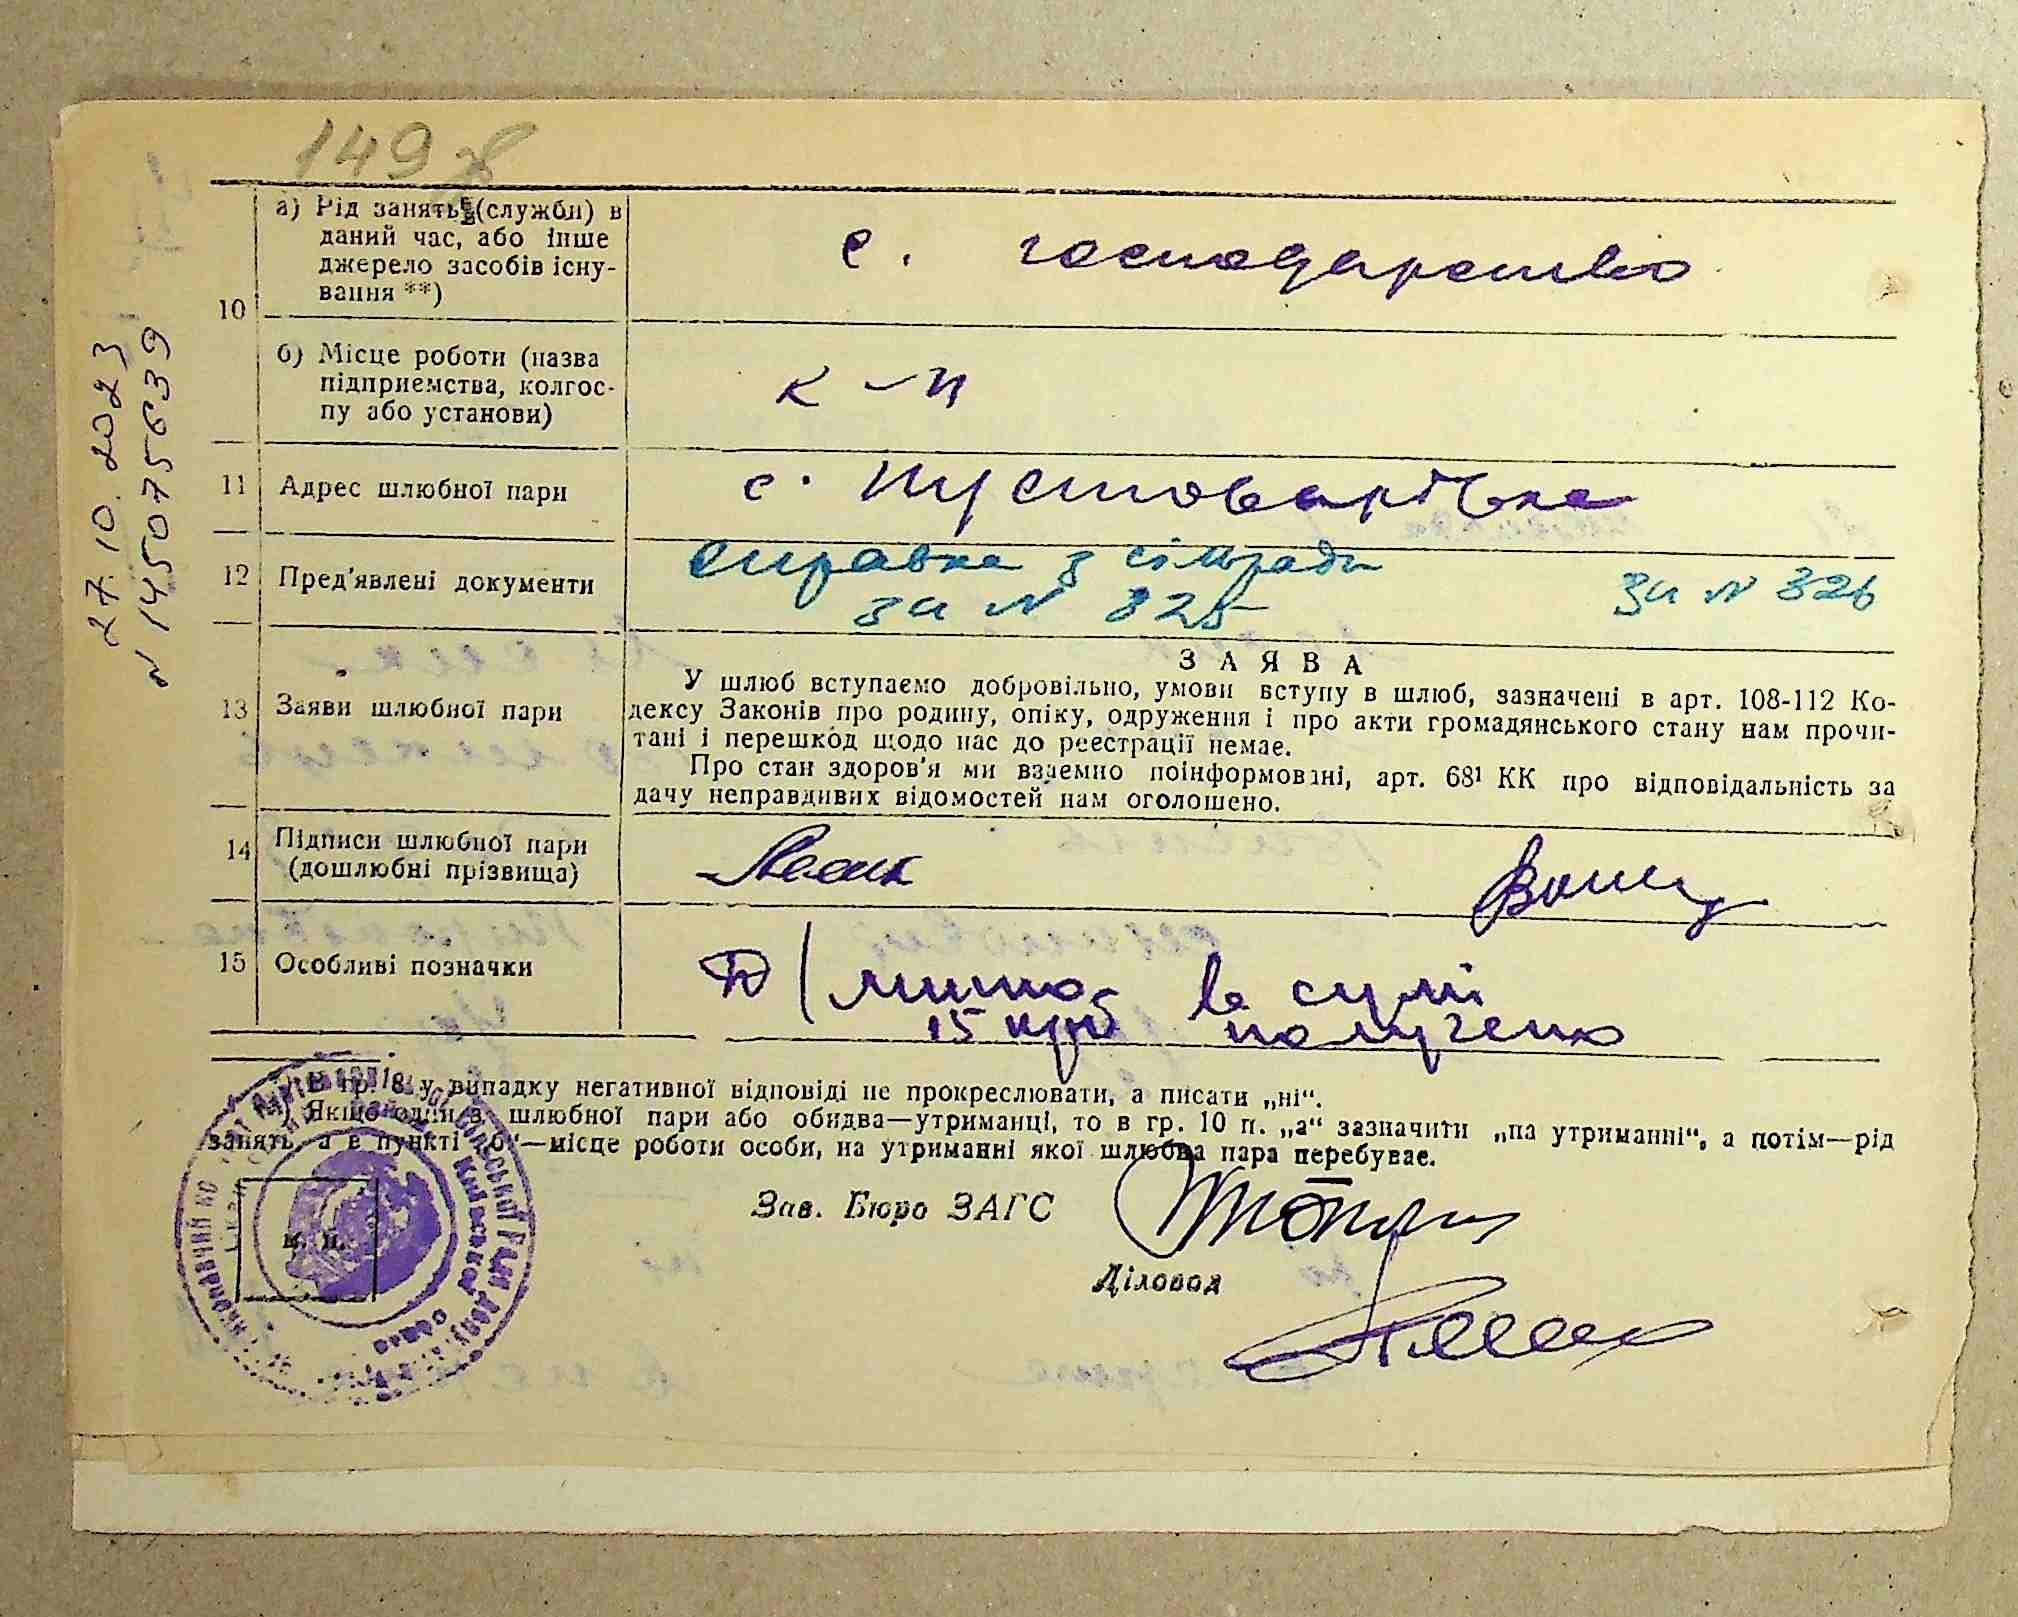 149
27.10.2023
N 1455075639
10
а) Рід занять (служби) в
даний час, або інше
джерело засобів існу-
вання **)
с. господарство
б) Місце роботи (назва
підприємства, колгос-
пу або установи)
к-п
11 Адрес шлюбної пари
с. Пустоварівка
12 Пред'явлені документи
справка з сільради
за N 325 за N 326
13 Заяви шлюбної пари
ЗАЯВА
У шлюб вступаємо добровільно, умови вступу в шлюб, зазначені в арт. 108-112 Ко-
дексу Законів про родину, опіку, одруження і про акти громадянського стану нам прочи-
тані і перешкод щодо нас до реєстрації немає.
Про стан здоров'я ми взаємно поінформовані, арт. 68¹ КК про відповідальність за
дачу неправдивих відомостей нам оголошено.
14 Підписи шлюбної пари
(дошлюбні прізвища)
15 Особливі позначки
мито в сумі
15 крб получено
В гр. 8 у випадку негативної відповіді не прокреслювати, а писати „ні“.
Якщо один з шлюбної пари або обидва—утриманці, то в гр. 10 п. „а“ зазначити „на утриманні“, а потім—рід
занять, а в пункті „б“—місце роботи особи, на утриманні якої шлюбна пара перебуває.
Зав. Бюро ЗАГС
Діловод
м. п.